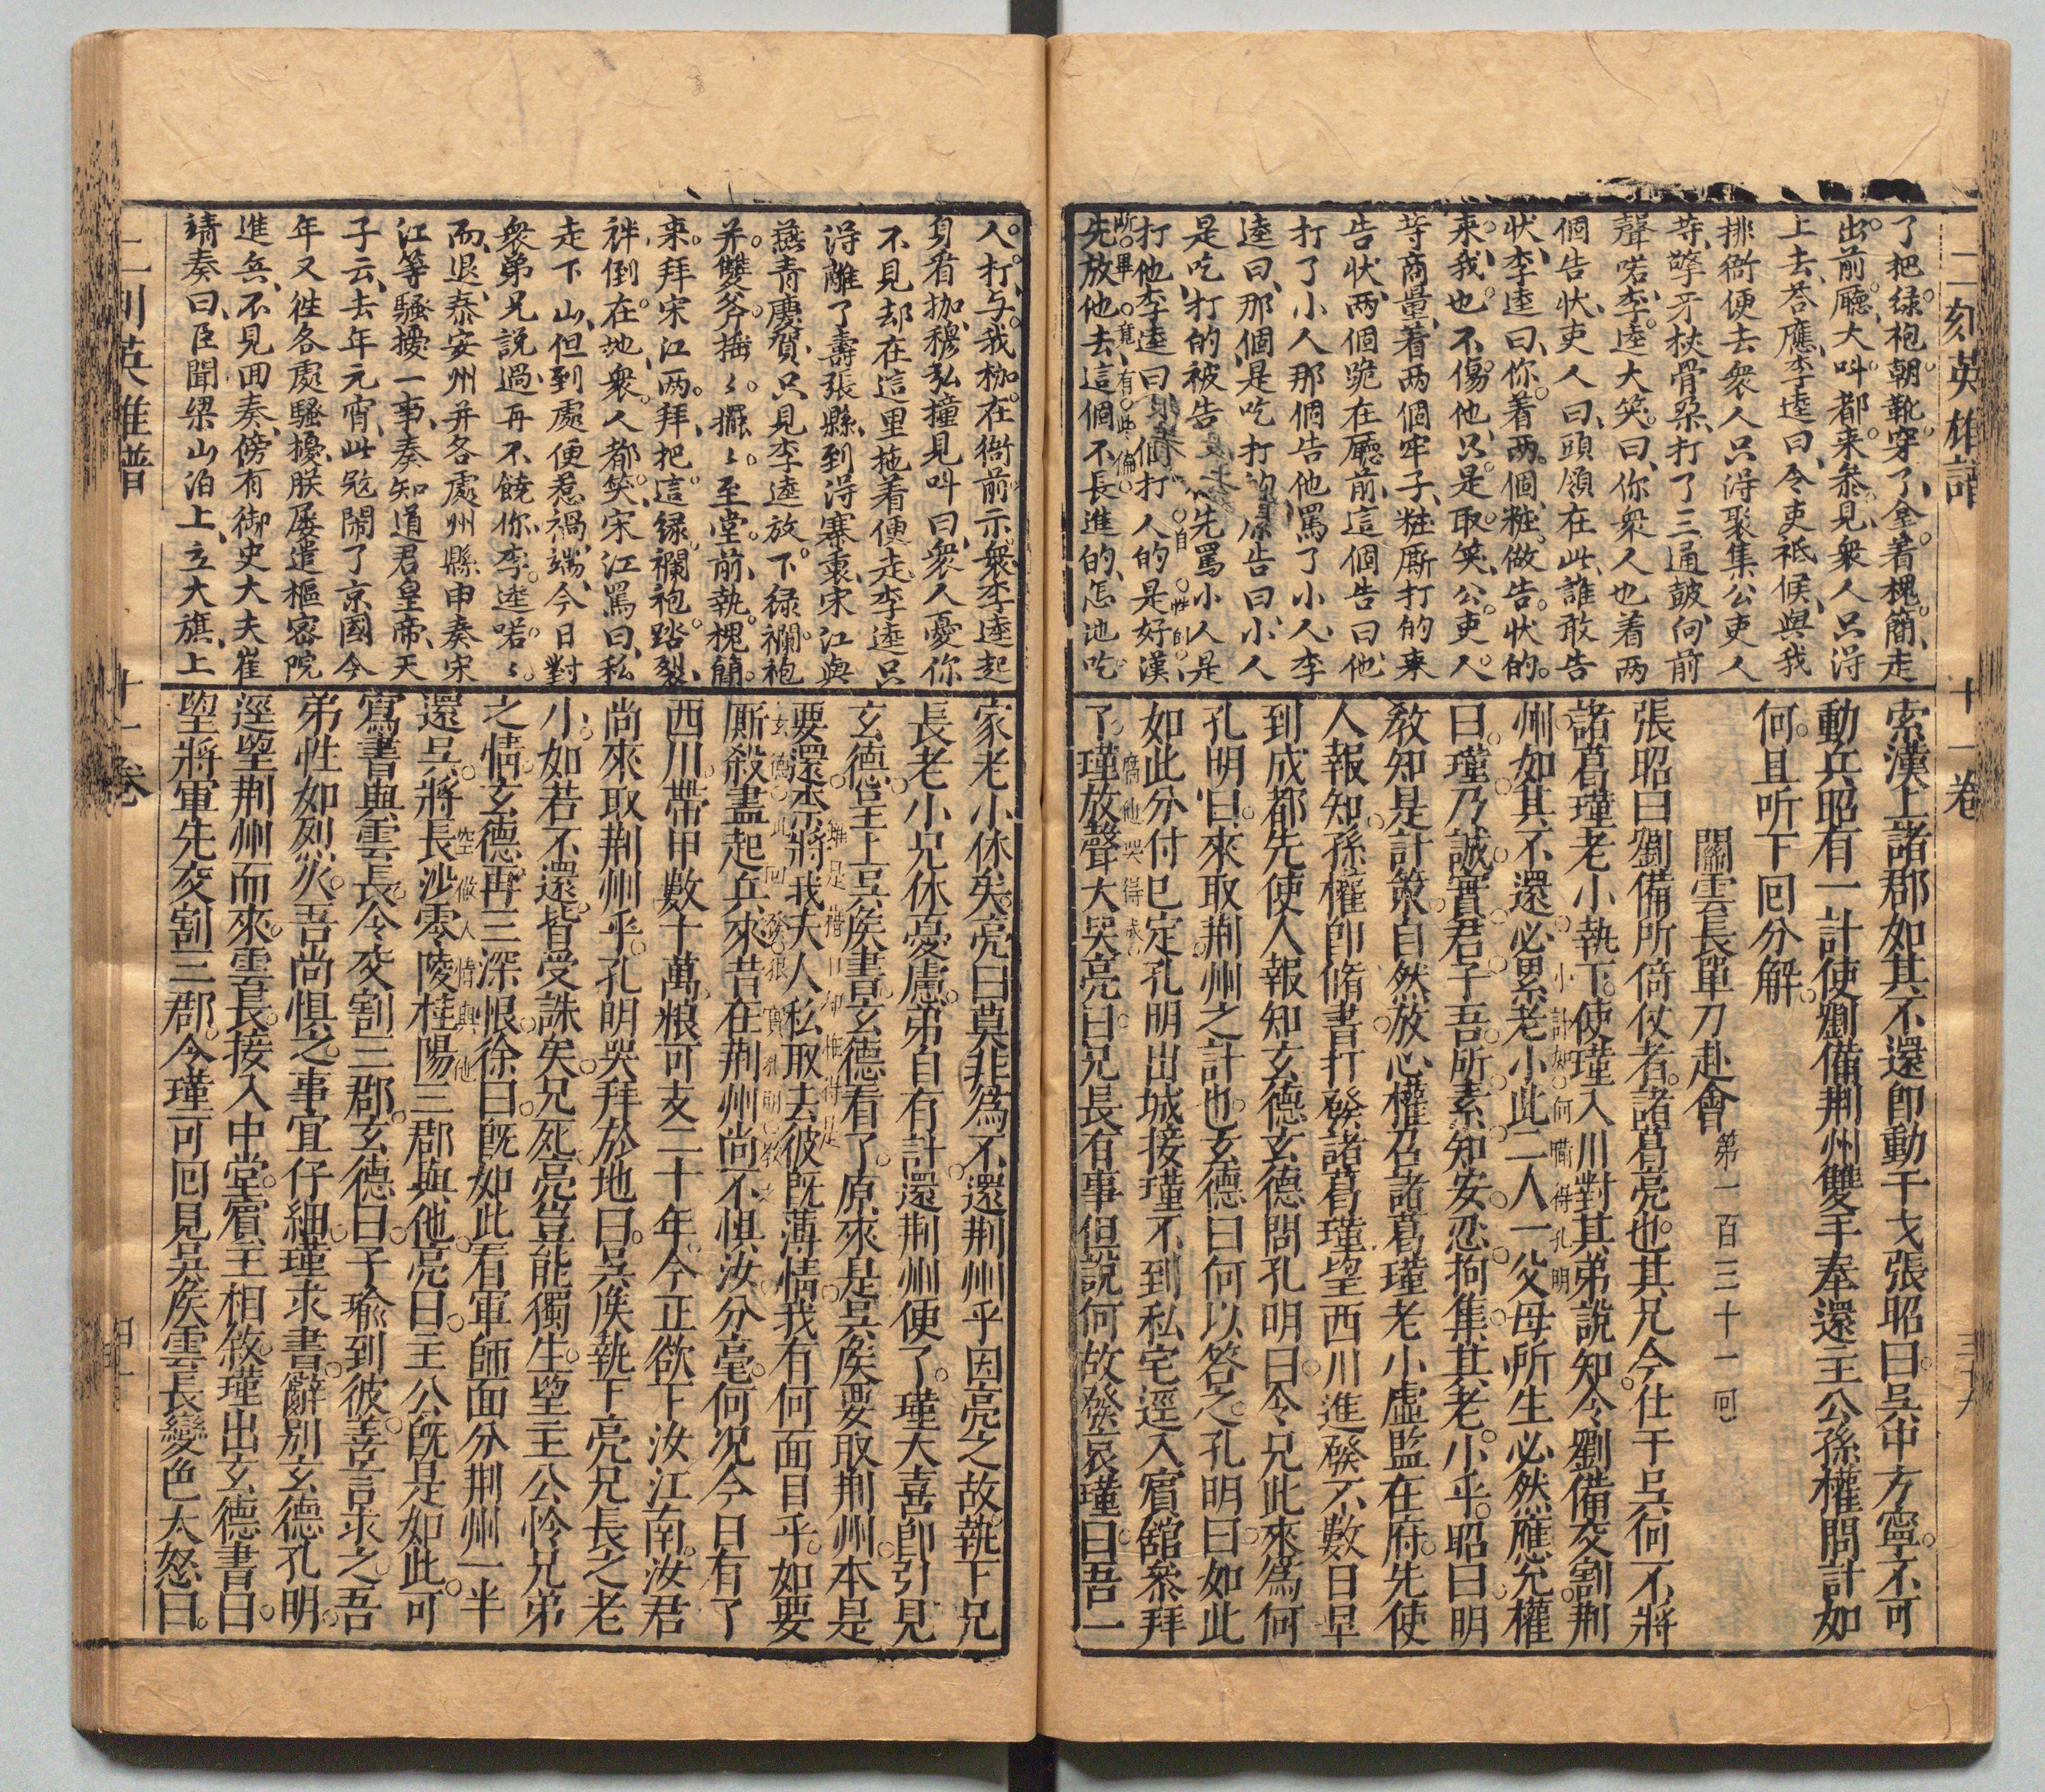 二刻英雄譜
十一卷
了把緑袍朝靴穿了拿着槐簡走
出前廳大呌都來叅見衆人只淂
上去荅應李逵曰令吏祗候與我
排衙便去衆人只淂聚集公吏人
䓁擎牙杖骨朶打了三通皷向前
聲喏李逵大笑曰你衆人也着两
個告状吏人曰頭領在此誰敢告
状李逵曰你着两個粧做告状的
来我也不傷他只是取笑公吏人
䓁商量着两個牢子粧厮打的来
告状两個跪在廳前這個告曰他
打了小人那個告他罵了小人李
逵曰那個是吃打的原告曰小人
是吃打的被告曰先罵小人是
打他李逵曰個打人的是好漢
先放他去這個不長進的怎地吃
索漢上諸郡如其不還即動干戈張昭曰吳中方寧不可
動兵昭有一計使劉備荆州雙手奉還主公孫權問計如
何且听下囘分解
關雲長單刀赴會 第一百三十一囘
張昭曰劉備所倚仗者諸葛亮也其兄今仕于吳何不將
諸葛瑾老小執下使瑾入川對其弟說知令劉備交割荆
州如其不還必累老小此二人一父母所生必然應允權
曰瑾乃誠實君子吾所素知安忍拘集其老小乎昭曰明
敎知是計策自然放心權召諸葛瑾老小虛監在府先使
人報知孫權卽脩書打發諸葛瑾望西川進發不數日早
到成都先使人報知玄德玄德問孔明曰令兄此來爲何
孔明曰來取荆州之計也玄德曰何以答之孔明曰如此
如此分付已定孔明出城接瑾不到私宅逕入賔舘叅拜
了瑾放聲大哭亮曰兄長有事但說何故發哀瑾曰吾一
人打与我枷在衙前示衆李逵起
身看枷穆弘撞見呌曰衆人憂你
不見却在這里拖着便走李逵只
淂離了壽張縣到淂寨裏宋江與
燕青慶賀只見李逵放下緑襴袍
并雙斧揺〻擺〻至堂前執槐簡
来拜宋江两拜把這緑襴袍踏裂
袢倒在地衆人都笑宋江罵曰私
走下山但到處便惹禍端今日對
衆弟兄說過再不饒你李逵喏〻
而退泰安州并各處州縣申奏宋
江等騷擾一事奏知道君皇帝天
子云去年元宵此冦閙了京國今
年又徃各處騷擾朕屡遣樞密院
進兵不見囬奏傍有御史大夫崔
靖奏曰臣聞梁山泊上立大旗上
家老小休矣亮曰莫非爲不還荆州乎因亮之故執下兄
長老小兄休憂慮弟自有計還荆州便了瑾大喜卽引見
玄德呈上吳侯書玄德看了原來是吳侯要取荆州本是
要還柰將我夫人私取去彼旣薄情我有何面目乎如要
厮殺盡起兵來昔在荆州尚不惧汝分毫何况今日有了
西川帶甲數十萬粮可支二十年今正欲下汝江南汝君
尚來取荆州乎孔明哭拜於地曰吳侯執下亮兄長之老
小如若不還皆受誅矣兄死亮豈能獨生望主公怜兄弟
之情玄德再三深恨徐曰旣如此看軍師面分荆州一半
還吳將長沙零陵桂陽三郡與他亮曰主公旣是如此可
寫書與雲長令交割三郡玄德曰子瑜到彼善言求之吾
弟性如烈火吾尚惧之事宜仔細瑾求書辭別玄德孔明
逕望荆州而來雲長接入中堂賔主相敘瑾出玄德書曰
望將軍先交割三郡令瑾可囘見吳侯雲長變色大怒曰